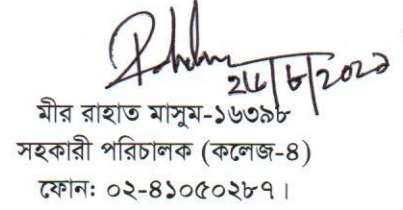 মীর রাহাত মাসুম-১৬৩৯৮
সহকারী পরিচালক (কলেজ-৪)
ফোনঃ ০২-৪১০৫০২৮৭।